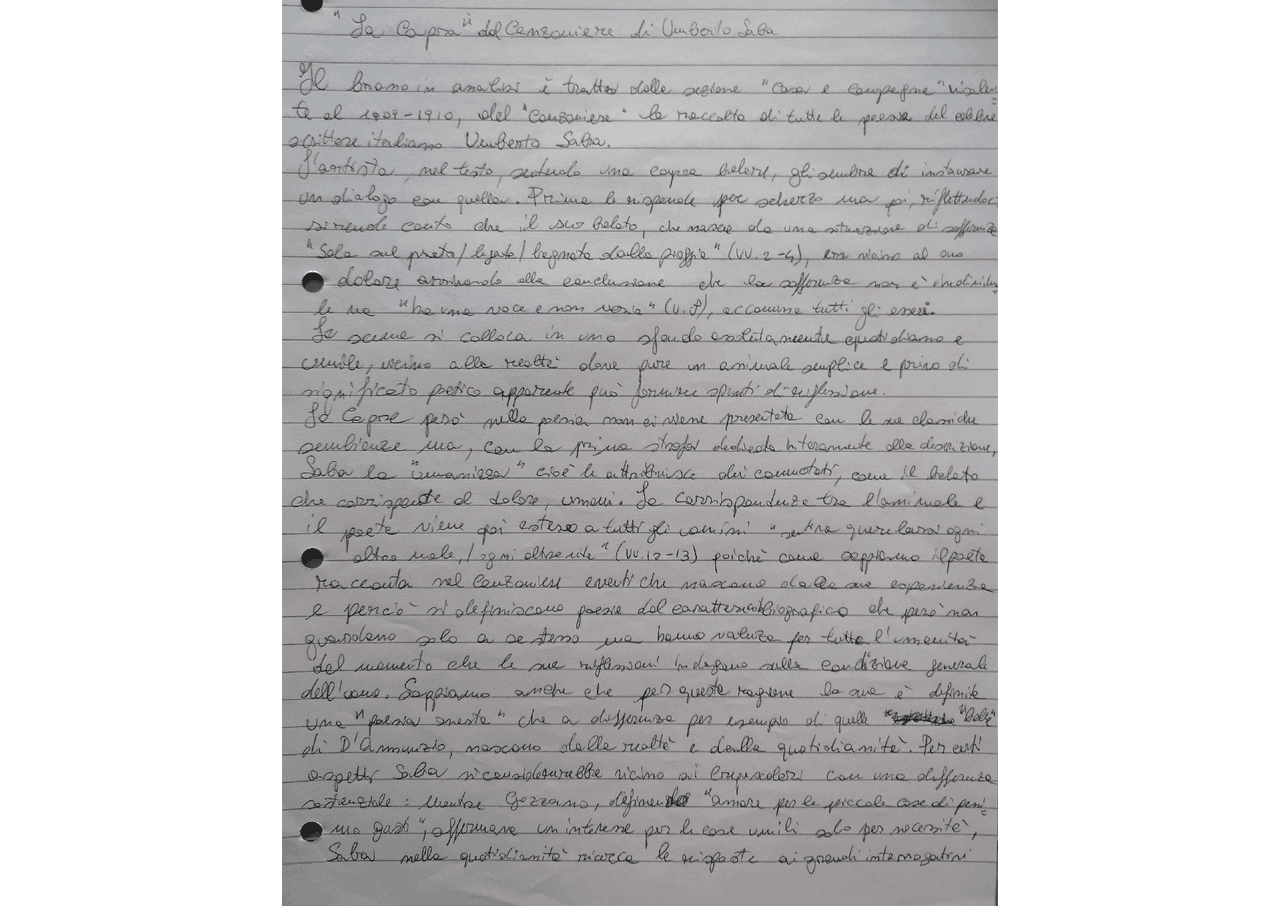 "La Capra" dal Canzoniere di Umberto Saba
Il brano in analisi è tratto dalla sezione "Casa e campagna" risalen=
te al 1909-1910, del "Canzoniere" la raccolta di tutte le poesie del celebre
scrittore italiano Umberto Saba.
L'artista, nel testo, sentendo una capra belare, gli sembra di instaurare
un dialogo con quella. Prima le risponde per scherzo ma poi, riflettendoci
si rende conto che il suo belato, che nasce da una situazione di sofferenza
"Sola sul prato/legata/bagnata dalla pioggia" (vv.2-4), era vicino al suo
dolore arrivando alla conclusione che la sofferenza non è individua=
le ma "ha una voce e non varia" (v.8), accomuna tutti gli esseri.
La scena si colloca in uno sfondo assolutamente quotidiano e
umile, vicino alla realtà dove pure un animale semplice e privo di
significato poetico apparente può fornire spunti di riflessione.
La Capra però nella poesia non ci viene presentata con le sue classiche
sembianze ma, con la prima strofa dedicata interamente alla descrizione,
Saba la "umanizza" cioè le attribuisce dei connotati, come il belato
che corrisponde al dolore, umani. La corrispondenza tra l'animale e
il poeta viene poi esteso a tutti gli uomini "sentiva querelarsi ogni
altro male,/ogni altra vita" (vv.12-13) poichè come sappiamo il poeta
racconta nel Canzoniere eventi che nascono dalla sua esperienza
e perciò si definiscono poesie dal carattere autobiografico che però non
guardano solo a se stesso ma hanno valenza per tutta l'umanità
dal momento che le sue riflessioni indagano sulla condizione generale
dell'uomo. Sappiamo anche che per questa ragione la sua è definita
una "poesia onesta" che a differenza per esempio di quella "bella"
di D'Annunzio, nascono dalla realtà e dalla quotidianità. Per certi
aspetti Saba si considererebbe vicino ai Crepuscolari con una differenza
sostanziale: mentre Gozzano, definendo "amore per le piccole cose di pessi=
mo gusto", affermava un interesse per le cose umili solo per necessità,
Saba nella quotidianità ricerca le risposte ai grandi interrogativi